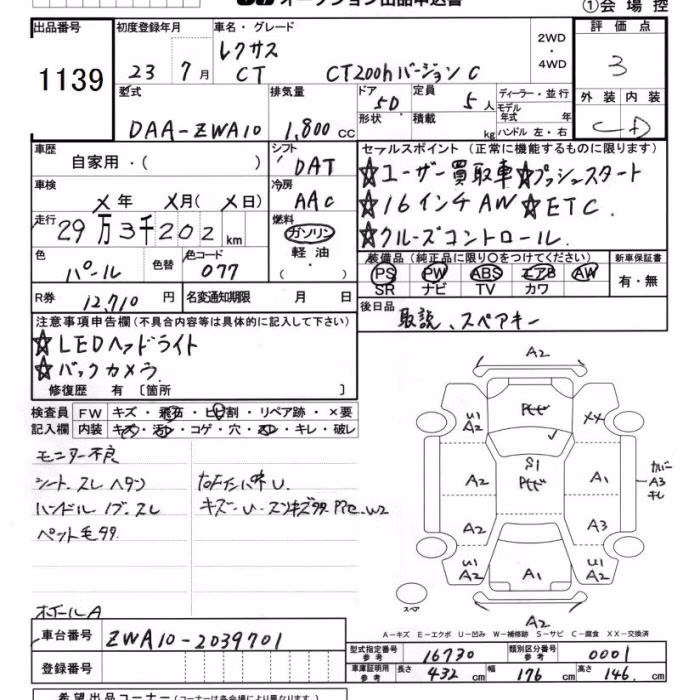 オークション出品申込書
①会場控
出品番号
1139
初度登録年月
23年7月
車名・グレード
レクサス
CT CT200hバージョンC
2WD・4WD
評価点
3
外装 内装
C D
型式
DAA-ZWA10
排気量
1,800 CC
ドア 5D
形状
定員 5人
積載 kg
ディーラー・並行
モデル年式 年
ハンドル 左・右
車歴
自家用・( )
シフト
DAT
車検
X年 X月(X日)
冷房
AAC
走行
29万3千202km
燃料
ガソリン
軽油
・( )
色
パール
色替
色コード
077
R券
12,710円
名変通知期限 月 日
セールスポイント(正常に機能するものに限ります)
☆ユーザー買取車☆プッシュスタート
☆16インチAW☆ETC.
☆クルーズコントロール.
装備品(純正品に限り○をつけてください)
PS PW ABS エアB AW
SR ナビ TV カワ
新車保証書
有・無
後日品
取説、スペアキー
注意事項申告欄(不具合内容等は具体的に記入して下さい)
☆LEDヘッドライト
☆バックカメラ
修復歴 有〔箇所 〕
検査員記入欄
FW キズ・飛石・ヒビ割・リペア跡・×要
内装 キズ・汚レ・コゲ・穴・スレ・キレ・破レ
モニター不良
シート.スレ ヘタン
ハンドル ノブ.スレ
ペット毛多々
ホイールA
A2
U1
A2
XX
S1
A2
A1
カバー
A3
キレ
A2
A3
U1
A2
A1
U1
A2
スペア
A2
A-キズ E-エクボ U-凹み W-補修跡 S-サビ C-腐食 XX-交換済
車台番号
ZWA10-2039701
登録番号
型式指定番号 参考 16730
類別区分番号 参考 0001
車庫証明用 参考 長さ 432cm 幅 176cm 高さ 146cm
希望出品コーナー(コーナーは各会場により異なります)